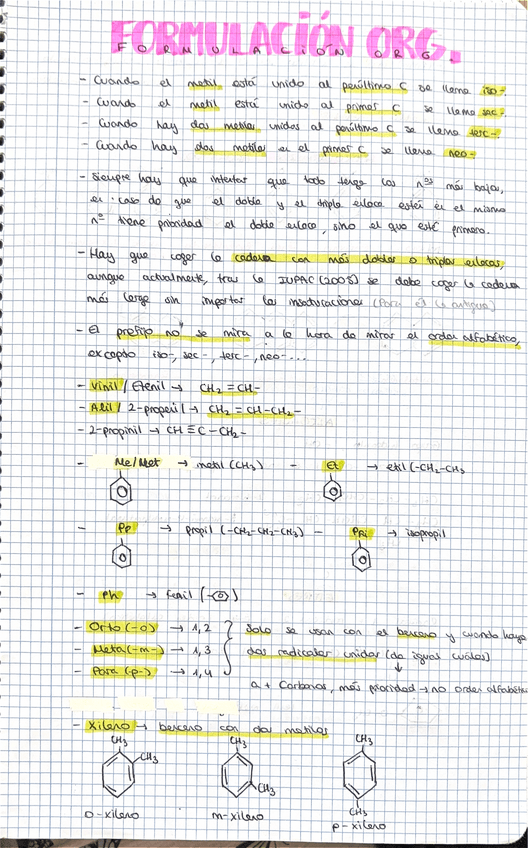 FORMULACIÓN ORG.
FORMULACIÓN ORG.
- Cuando el metil está unido al penúltimo C se llama iso-
- Cuando el metil está unido al primer C se llama sec-
- Cuando hay dos metiles unidos al penúltimo C se llama terc-
- Cuando hay dos metiles en el primer C se llama neo-
- Siempre hay que intentar que todo tenga los nºs más bajos,
en caso de que el doble y el triple enlace estén en el mismo
nº tiene prioridad el doble enlace, sino el que esté primero.
- Hay que coger la cadena con más dobles o triples enlaces,
aunque actualmente, tras la IUPAC (2008) se debe coger la cadena
más larga sin importar las insaturaciones (Para él la antigua)
- El prefijo no se mira a la hora de mirar el orden alfabético,
excepto iso-, sec-, terc-, neo-...
- Vinil / Etenil → CH₂=CH-
- Alil / 2-propenil → CH₂=CH-CH₂-
- 2-propinil → CH≡C-CH₂-
- Me/Met → metil (CH₃) - Et → etil (-CH₂-CH₃
- Pp → propil (-CH₂-CH₂-CH₃) - PRi → isopropil
- Ph → fenil
- Orto (-o) → 1,2 } Solo se usan con el benceno y cuando haya
- Meta (-m-) → 1,3 dos radicales unidos (da igual cuáles)
- Para (-p-) → 1,4 ↓
a + Carbonos, más prioridad → no orden alfabético
- Xileno → benceno con dos metilos
CH₃ CH₃ CH₃
CH₃ CH₃ CH₃
o-xileno m-xileno p-xileno